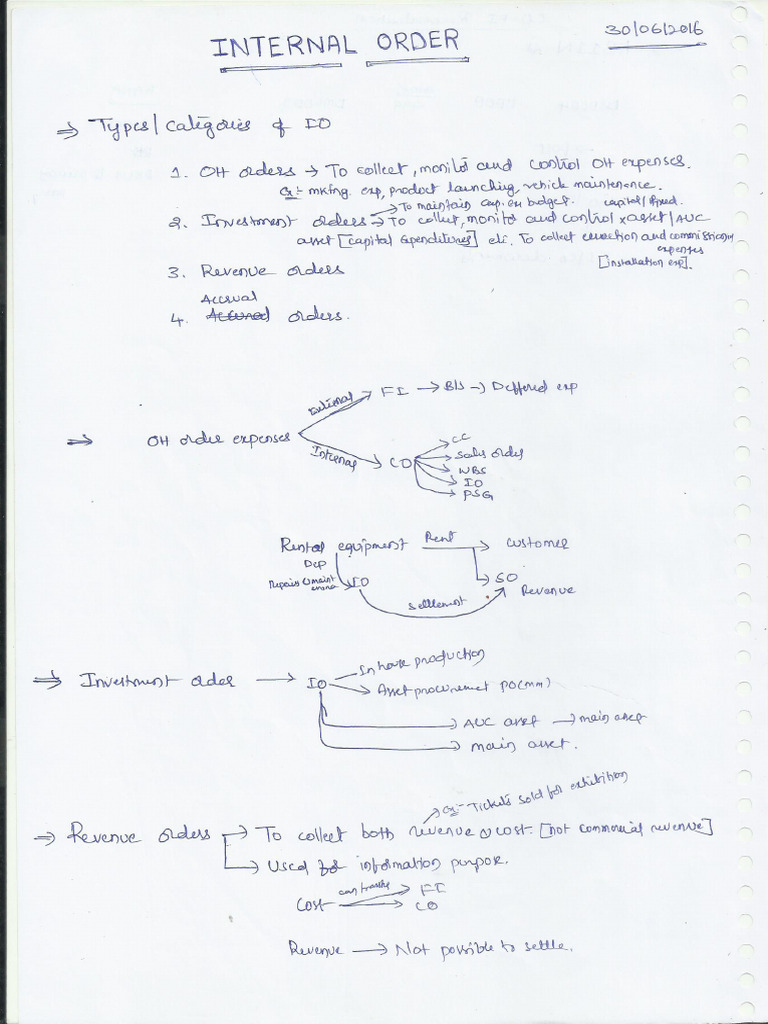 INTERNAL ORDER
30/06/2016
⇒ Types/Categories of IO
1. OH orders → To collect, monitor and control OH expenses.
Ex:- mktng. exp, product launching, vehicle maintenance.
→ To maintain exp. on budget. capital/fixed.
2. Investment orders → To collect, monitor and control x asset/AUC
asset [capital expenditures] etc. To collect errection and commissioning
expenses
[installation exp].
3. Revenue orders
Accrual
4. orders.
External → FI → B/S → Deffered exp
⇒ OH order expenses
Internal → CO
CC
Sales order
WBS
IO
PSG
Rental equipment Rent → customer
Dep
Repairs & maint IO
SO
Revenue
settlement
⇒ Investment order → IO
In house production
Asset procurement PO(MM)
→ AUC asset → main asset
→ main asset.
Ex:- Tickets sold for exhibition
⇒ Revenue orders → To collect both revenue & cost [not commercial revenue]
→ Used for information purpose.
Cost → FI
→ CO
Revenue → Not possible to settle.